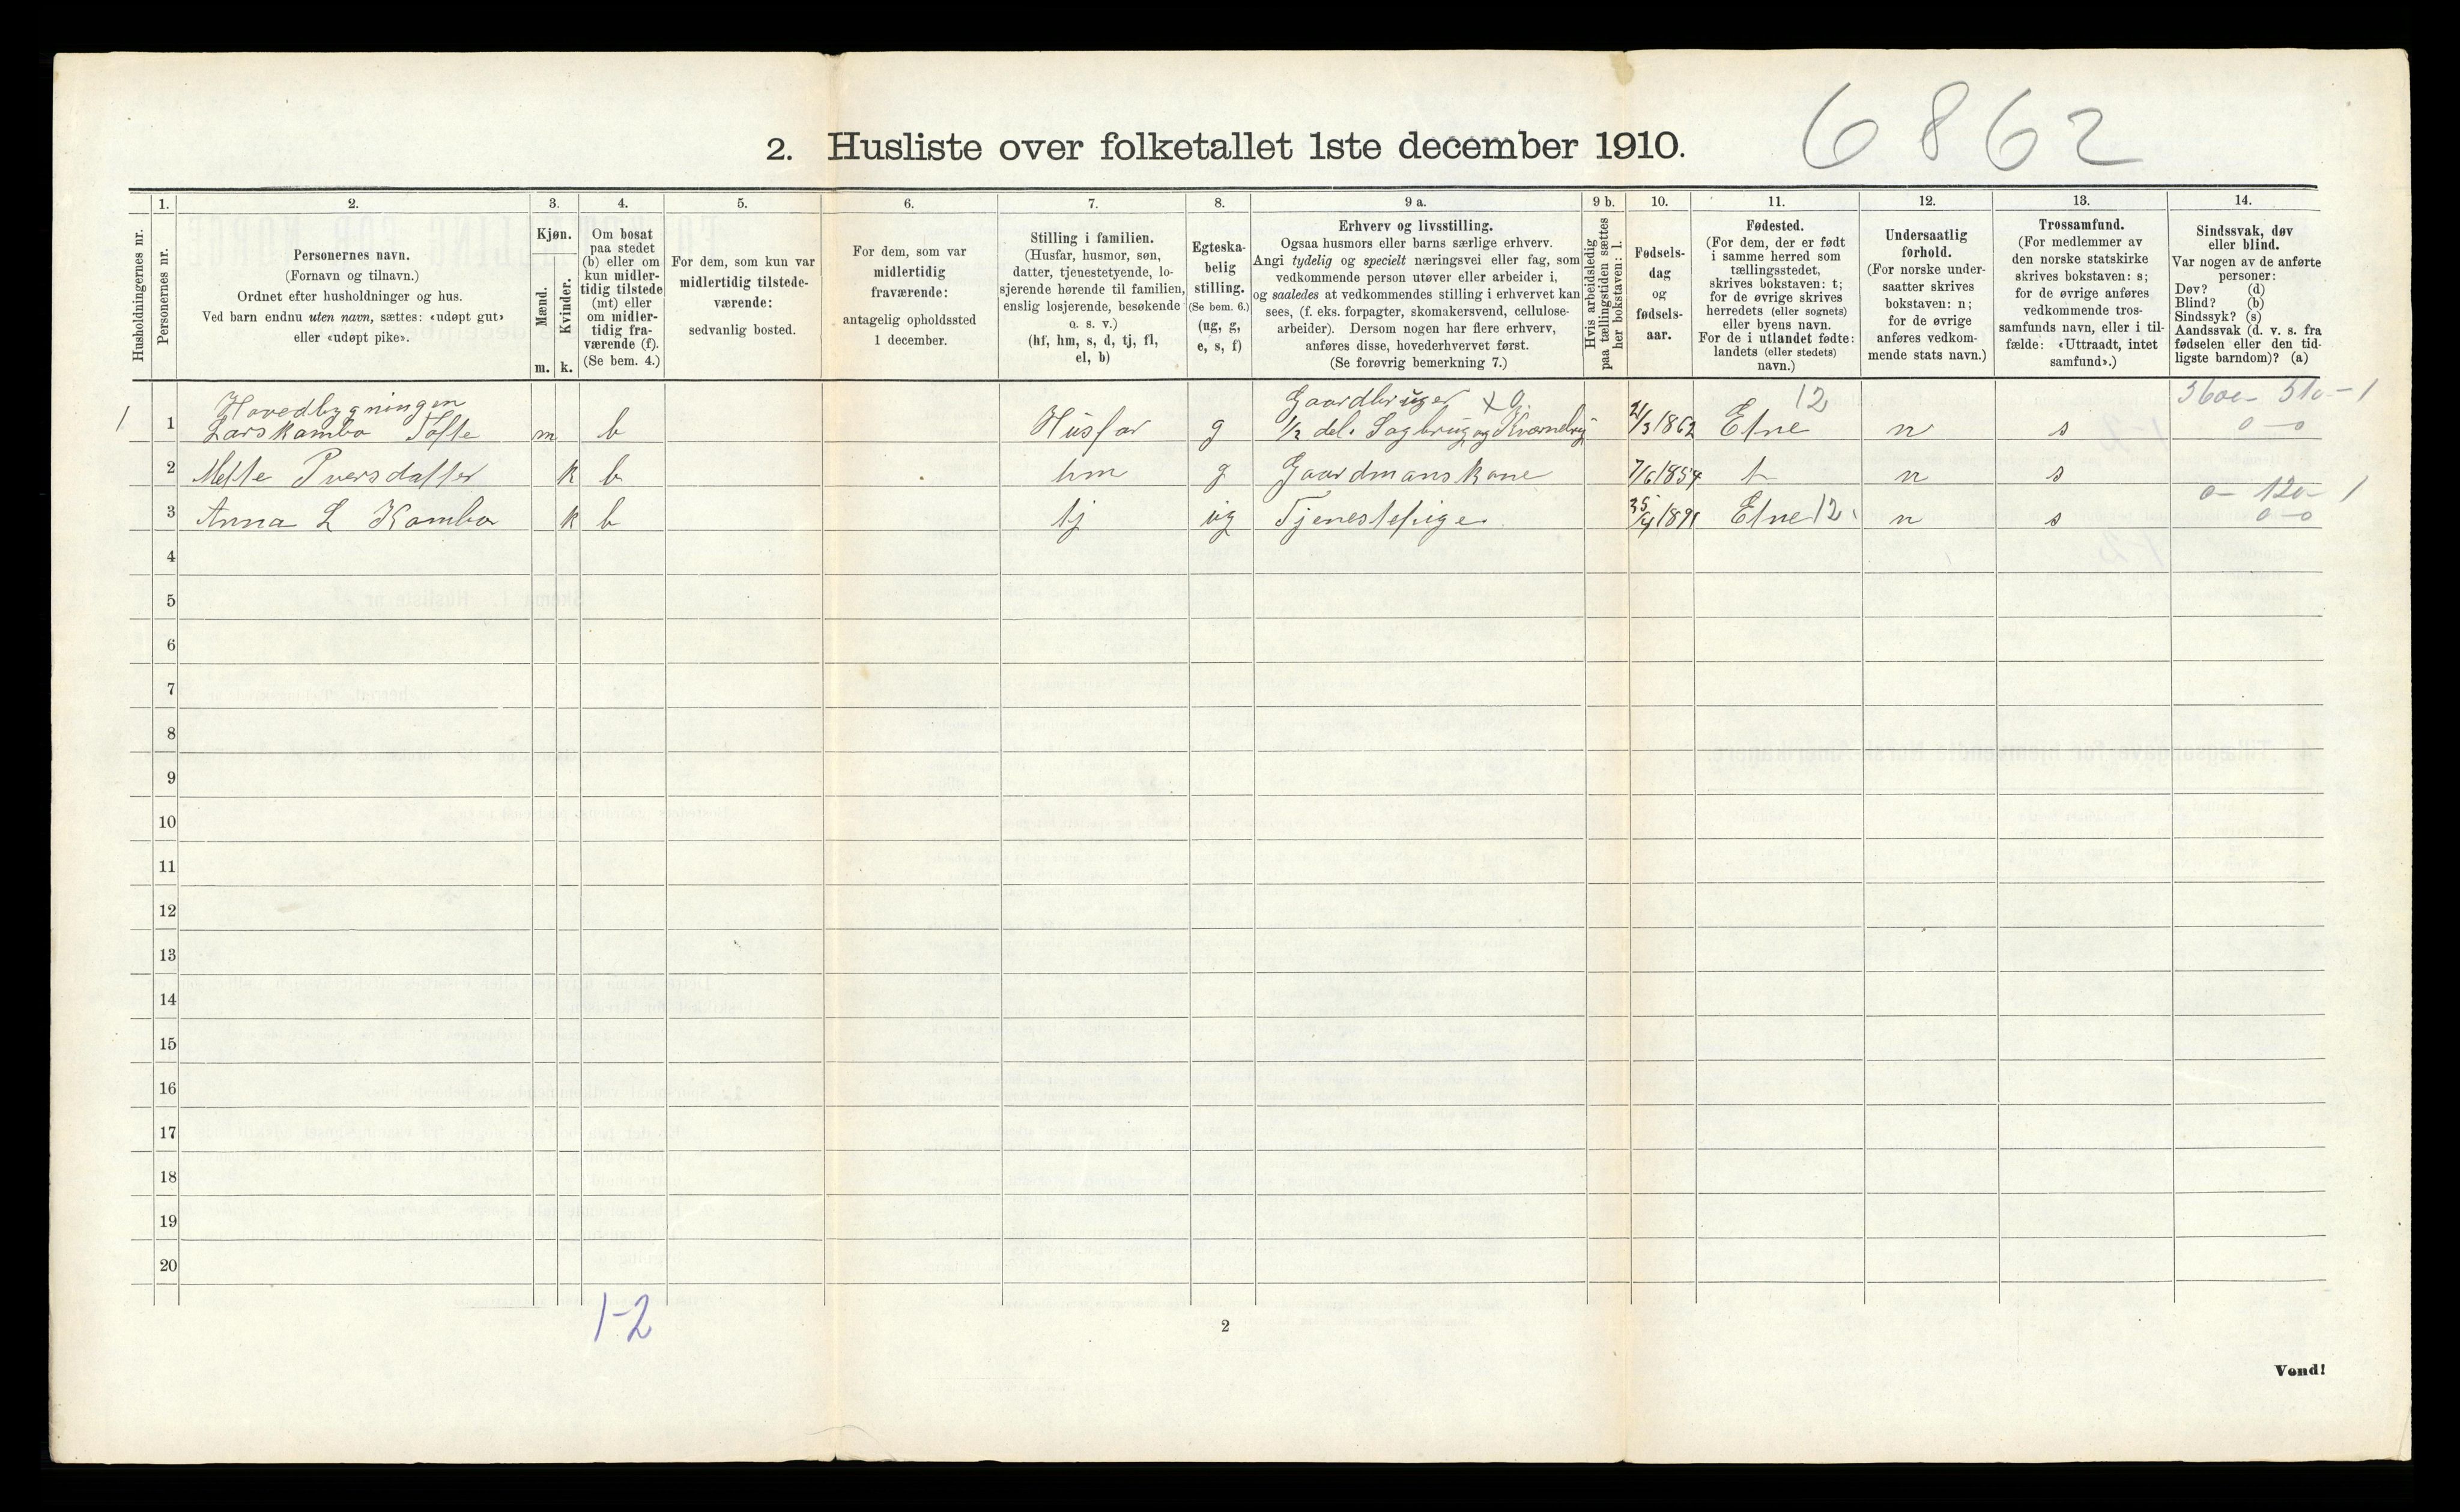 2. Husliste over folketallet 1ste december 1910. 6862
Husholdningernes nr.
1. Personernes nr.
2. Personernes navn.
(Fornavn og tilnavn.)
Ordnet efter husholdninger og hus.
Ved barn endnu uten navn, sættes: «udøpt gut»
eller «udøpt pike».
3. Kjøn.
Mænd. Kvinder.
m. k.
4. Om bosat
paa stedet
(b) eller om
kun midler-
tidig tilstede
(mt) eller
om midler-
tidig fra-
værende (f).
(Se bem. 4.)
5. For dem, som kun var
midlertidig tilstede-
værende:
sedvanlig bosted.
6. For dem, som var
midlertidig
fraværende:
antagelig opholdssted
1 december.
7. Stilling i familien.
(Husfar, husmor, søn,
datter, tjenestetyende, lo-
sjerende hørende til familien,
enslig losjerende, besøkende
o. s. v.)
(hf, hm, s, d, tj, fl,
el, b)
8. Egteska-
belig
stilling.
(Se bem. 6.)
(ug, g,
e, s, f)
9 a. Erhverv og livsstilling.
Ogsaa husmors eller barns særlige erhverv.
Angi tydelig og specielt næringsvei eller fag, som
vedkommende person utøver eller arbeider i,
og saaledes at vedkommendes stilling i erhvervet kan
sees, (f. eks. forpagter, skomakersvend, cellulose-
arbeider). Dersom nogen har flere erhverv,
anføres disse, hovederhvervet først.
(Se forøvrig bemerkning 7.)
9 b. Hvis arbeidsledig
paa tællingstiden sættes
her bokstaven: l.
10. Fødsels-
dag
og
fødsels-
aar.
11. Fødested.
(For dem, der er født
i samme herred som
tællingsstedet,
skrives bokstaven: t;
for de øvrige skrives
herredets (eller sognets)
eller byens navn.
For de i utlandet fødte:
landets (eller stedets)
navn.)
12. Undersaatlig
forhold.
(For norske under-
saatter skrives
bokstaven: n;
for de øvrige
anføres vedkom-
mende stats navn.)
13. Trossamfund.
(For medlemmer av
den norske statskirke
skrives bokstaven: s;
for de øvrige anføres
vedkommende tros-
samfunds navn, eller i til-
fælde: «Uttraadt, intet
samfund».)
14. Sindssvak, døv
eller blind.
Var nogen av de anførte
personer:
Døv? (d)
Blind? (b)
Sindssyk? (s)
Aandssvak (d. v. s. fra
fødselen eller den tid-
ligste barndom)? (a)
Hovedbygningen Gaardbruger 12 3600- 510-1
1 1 Lars Kambo Tofte m b Husfar g 1/2 del. Sagbrug og Kværnebrug 21/3 1862 Etne n s 0-0
2 Mette Iversdatter k b hm g Gaardmanskone 7/6 1854 t n s
0- 120- 1
3 Anna L Kambo k b tj ug Tjenestepige 25/4 1891 Etne 12 n s 0-0
4
5
6
7
8
9
10
11
12
13
14
15
16
17
18
19
20
1-2
2
Vend!